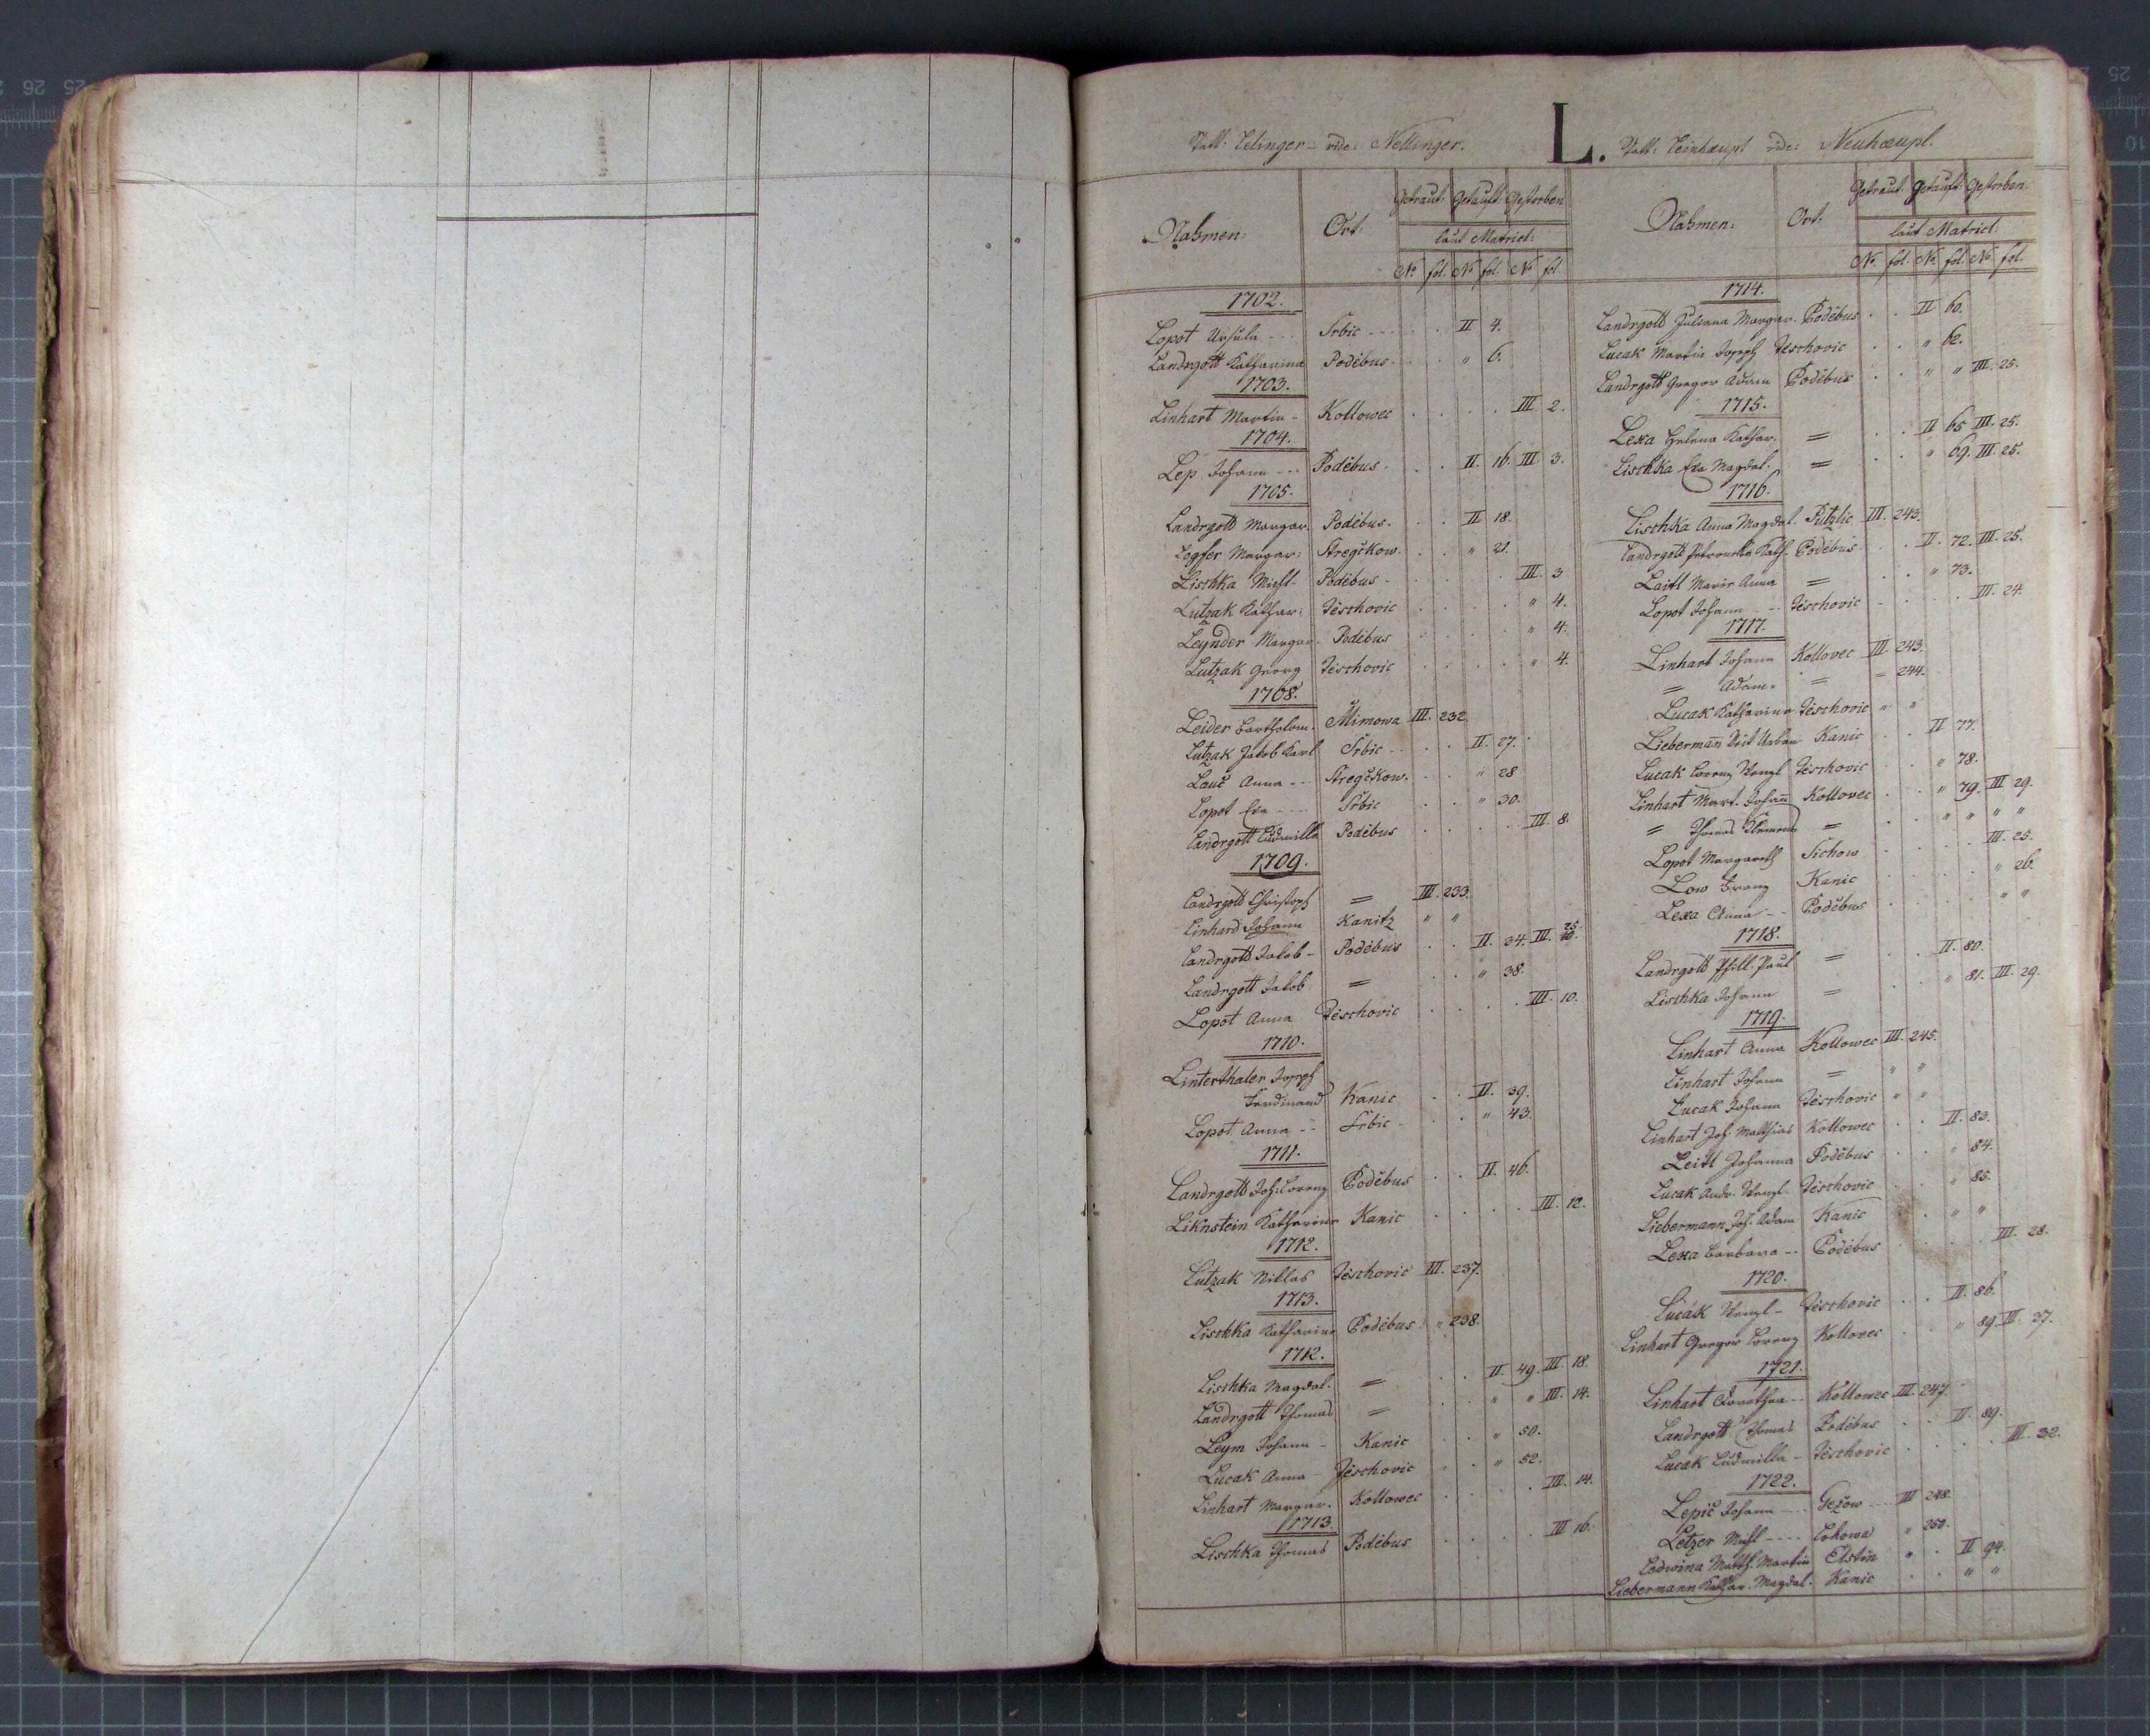 L.
Statt: Nellinger. Statt: Neuhæupl.
Nahmen: Ort: Getraut: Getauft: Gestorben
laut Matricl:
No. fol. No. fol. No. fol.
1702.
Lopot Ursula --- Srbic --- II 4.
Landrgott Katharina Poděbus. " 6.
1703.
Linhart Martin - Kollowec III 2.
1704.
Lep Johann --- Poděbus. II. 16. III 3.
1705.
Landrgott Margar. Poděbus. II 18.
Margar: " 21.
Lischka Michl. Poděbus - III. 3
Lutzak Kathar: Těschovic " 4.
Leynder Margar. Poděbus " 4.
Lutzak Georg Těschovic " 4.
1708.
Leider Bartholom. Mimowa III. 232.
Lutzak Jakob Karl Srbic -- II. 27.
Anna --- " 28
Lopot Eva ---- Srbic " 30.
Landrgott Ludmilla Poděbus III. 8.
1709.
Landrgott Christoph = III. 233.
Linhard Johann Kanitz " "
Landrgott Jakob - Poděbus II. 34. III.
Landrgott Jakob = " 38.
Lopot Anna Těschovic III. 10.
1710.
Linterthaler Joseph
Ferdinand Kanic II. 39.
Lopot Anna -- Srbic " 43.
1711.
Landrgott Joh: Lorenz Poděbus II. 46.
Liknstein Katharina Kanic III. 12.
1712.
Lutzak Niklas Těschovic III. 237.
1713.
Lischka Katharina Poděbus. " 238.
1712.
Lischka Magdal. = II. 49. III 18.
Landrgott Thomas = " " III. 14.
Leym Johann - Kanic " 50.
Lucak Anna - Těschovic " 52.
Linhart Margar. Kollowec III. 14.
1713.
Lischka Thomas Poděbus III 16.
Nahmen: Ort: Getraut: Getauft: Gestorben.
laut Matricl:
No. fol. No. fol. No. fol.
1714.
Landrgott Juliana Margar. Poděbus II 60.
Lucak Martin Joseph Těschovic " 62.
Landrgott Gregor Adam Poděbus " " III. 25.
1715.
Lexa Helena Kathar. = II 65 III. 25.
Lischka Eva Magdal. = " 69. III. 25.
1716.
Lischka Anna Magdal. Putzlic III. 243.
Landrgott Kath. Poděbus. II. 72. III. 25.
Laitl Maria Anna = " 73.
Lopot Johann -- Těschovic III. 24.
1717.
Linhart Johann Kollovec III 243.
= Adam. = = 244.
Lucak Katharina Těschovic " "
Liebermañ Veit Urban Kanic II 77.
Lucak Lorenz Wenzl Těschovic " 78.
Linhart Mart. Johañ Kollovec " 79. III 29.
= Thomas Klemens = " " " "
Lopot Margareth Sichow III. 25.
Low Franz Kanic " 26.
Lexa Anna -- Poděbus " "
1718.
Landrgott Phill. Paul = II. 80.
Lischka Johann = " 81. III. 29.
1719.
Linhart Anna Kollowec III. 245.
Linhart Johann = " "
Lucak Johann Těschovic " "
Linhart Joh. Matthias Kollowec II. 83.
Leitl Johanna Poděbus " 84.
Lucak Andr. Wenzl. Těschovic " 85.
Liebermann Joh. Adam Kanic " "
Lexa Barbara -- Poděbus III. 28.
1720.
Lucák Wenzl - Těschovic II. 86.
Linhart Gregor Lorenz Kollovec " 89 III. 37.
1721.
Linhart Dorothea -- Kollowec III. 247.
Landrgott Thomas Poděbus II. 89.
Lucak Ludmilla - Těschovic III. 32.
1722.
Lepič Johann --- III 248.
Letzer Michl ---- " 250.
Matth. Martin Elstin " II 94.
Liebermann Kathar. Magdal. Kanic " "